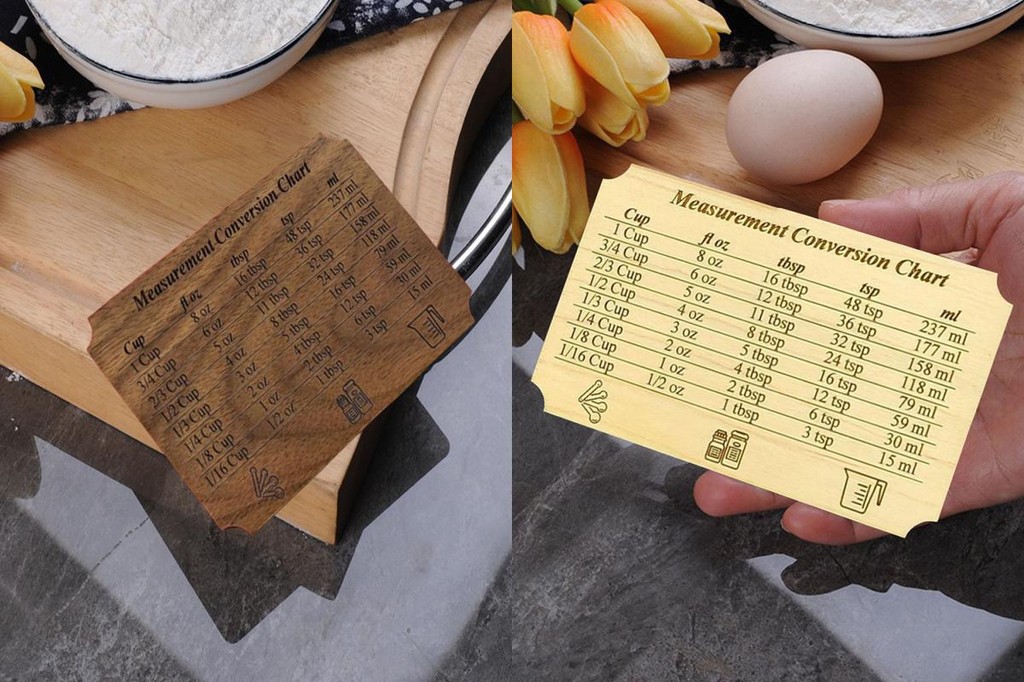 Measurement Conversion Chart
Cup fl oz tbsp tsp ml
1 Cup 8 oz 16 tbsp 48 tsp 237 ml
3/4 Cup 6 oz 12 tbsp 36 tsp 177 ml
2/3 Cup 5 oz 11 tbsp 32 tsp 158 ml
1/2 Cup 4 oz 8 tbsp 24 tsp 118 ml
1/3 Cup 3 oz 5 tbsp 16 tsp 79 ml
1/4 Cup 2 oz 4 tbsp 12 tsp 59 ml
1/8 Cup 1 oz 2 tbsp 6 tsp 30 ml
1/16 Cup 1/2 oz 1 tbsp 3 tsp 15 ml
Measurement Conversion Chart
Cup fl oz tbsp tsp ml
1 Cup 8 oz 16 tbsp 48 tsp 237 ml
3/4 Cup 6 oz 12 tbsp 36 tsp 177 ml
2/3 Cup 5 oz 11 tbsp 32 tsp 158 ml
1/2 Cup 4 oz 8 tbsp 24 tsp 118 ml
1/3 Cup 3 oz 5 tbsp 16 tsp 79 ml
1/4 Cup 2 oz 4 tbsp 12 tsp 59 ml
1/8 Cup 1 oz 2 tbsp 6 tsp 30 ml
1/16 Cup 1/2 oz 1 tbsp 3 tsp 15 ml